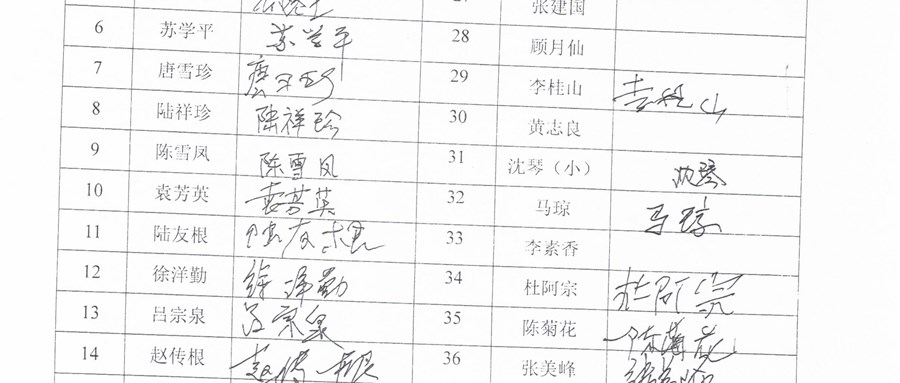 张建国
6 苏学平 苏学平 28 顾月仙
7 唐雪珍 唐雪珍 29 李桂山 李桂山
8 陆祥珍 陆祥珍 30 黄志良
9 陈雪凤 陈雪凤 31 沈琴（小） 沈琴
10 袁芳英 袁芳英 32 马琼 马琼
11 陆友根 陆友根 33 李素香
12 徐洋勤 徐洋勤 34 杜阿宗 杜阿宗
13 吕宗泉 吕宗泉 35 陈菊花 陈菊花
14 赵传根 赵传根 36 张美峰 张美峰